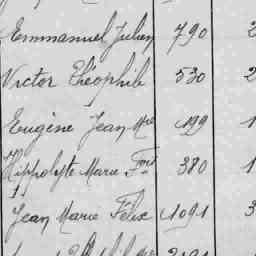 Emmanuel Julien 790 2
Victor Théophile 530 2
Eugène Jean Mie 499 1
Hippolyte Marie Fois 380 1
Jean Marie Félix 1091 3